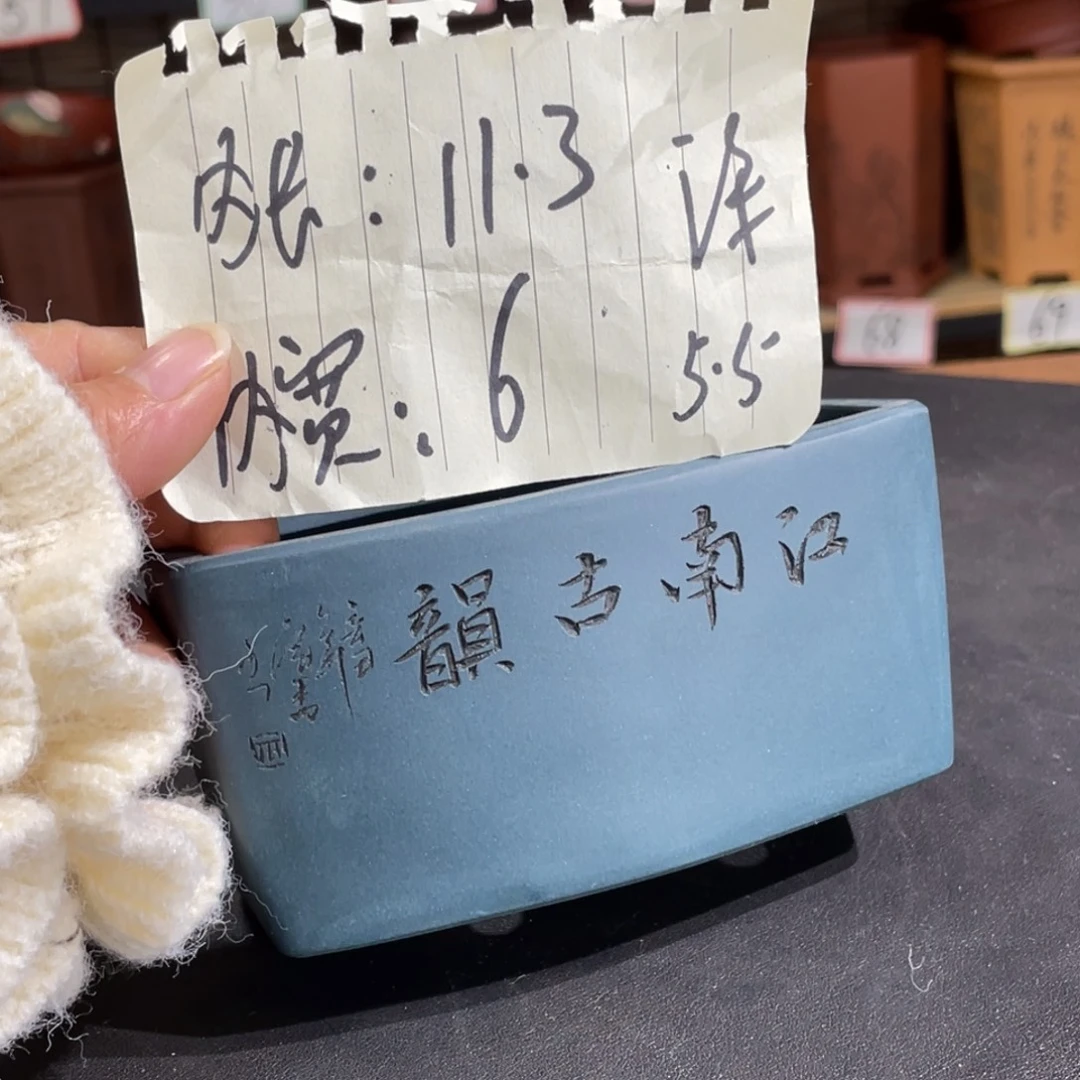 内长：11.3 深
内宽：6 5.5
江南古韻
68
69